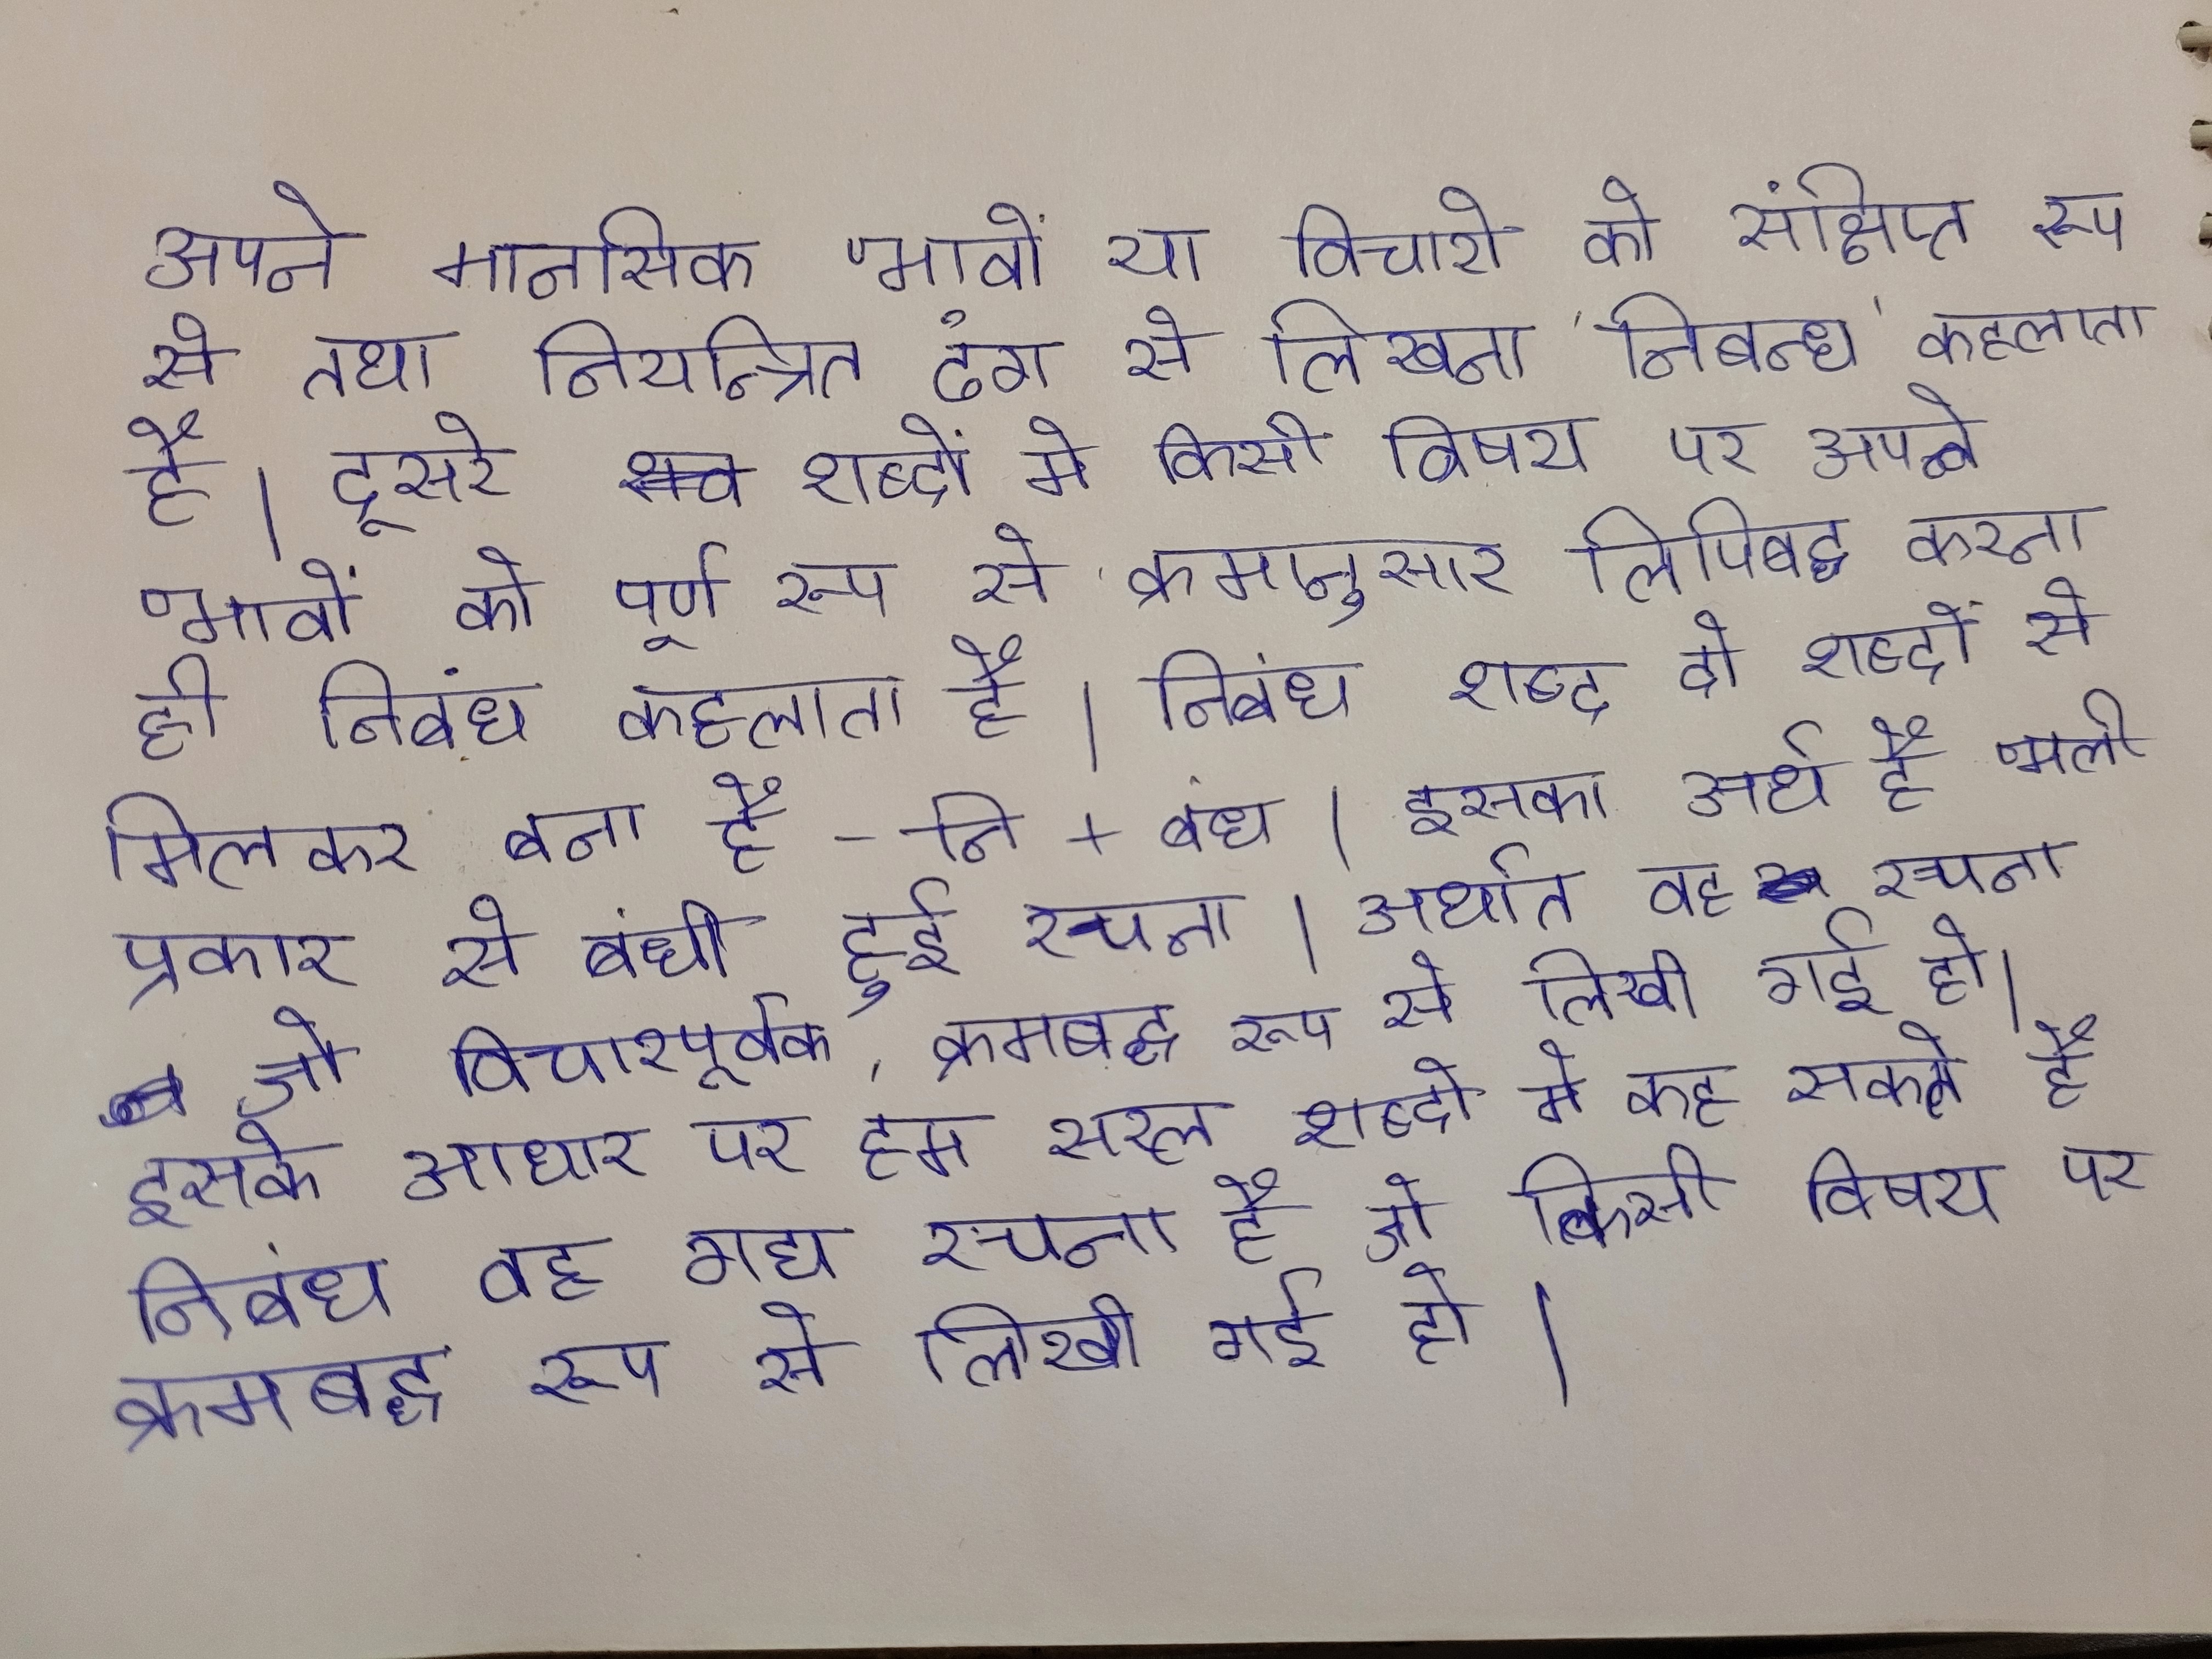 अपने मानसिक भावों या विचारो को संक्षिप्त रूप
से तथा नियन्त्रित ढंग से लिखना 'निबन्ध' कहलाता
है। दूसरे शब्दों मे किसी विषय पर अपने
भावों को पूर्ण रूप से क्रमानुसार लिपिबद्ध करना
ही निबंध कहलाता है। निबंध शब्द दो शब्दों से
मिलकर बना है - नि + बंध। इसका अर्थ है भली
प्रकार से बंधी हुई रचना। अर्थात वह रचना
जो विचारपूर्वक, क्रमबद्ध रूप से लिखी गई हो।
इसके आधार पर हम सरल शब्दो मे कह सकते है
निबंध वह गद्य रचना है जो किसी विषय पर
क्रमबद्ध रूप से लिखी गई हो।